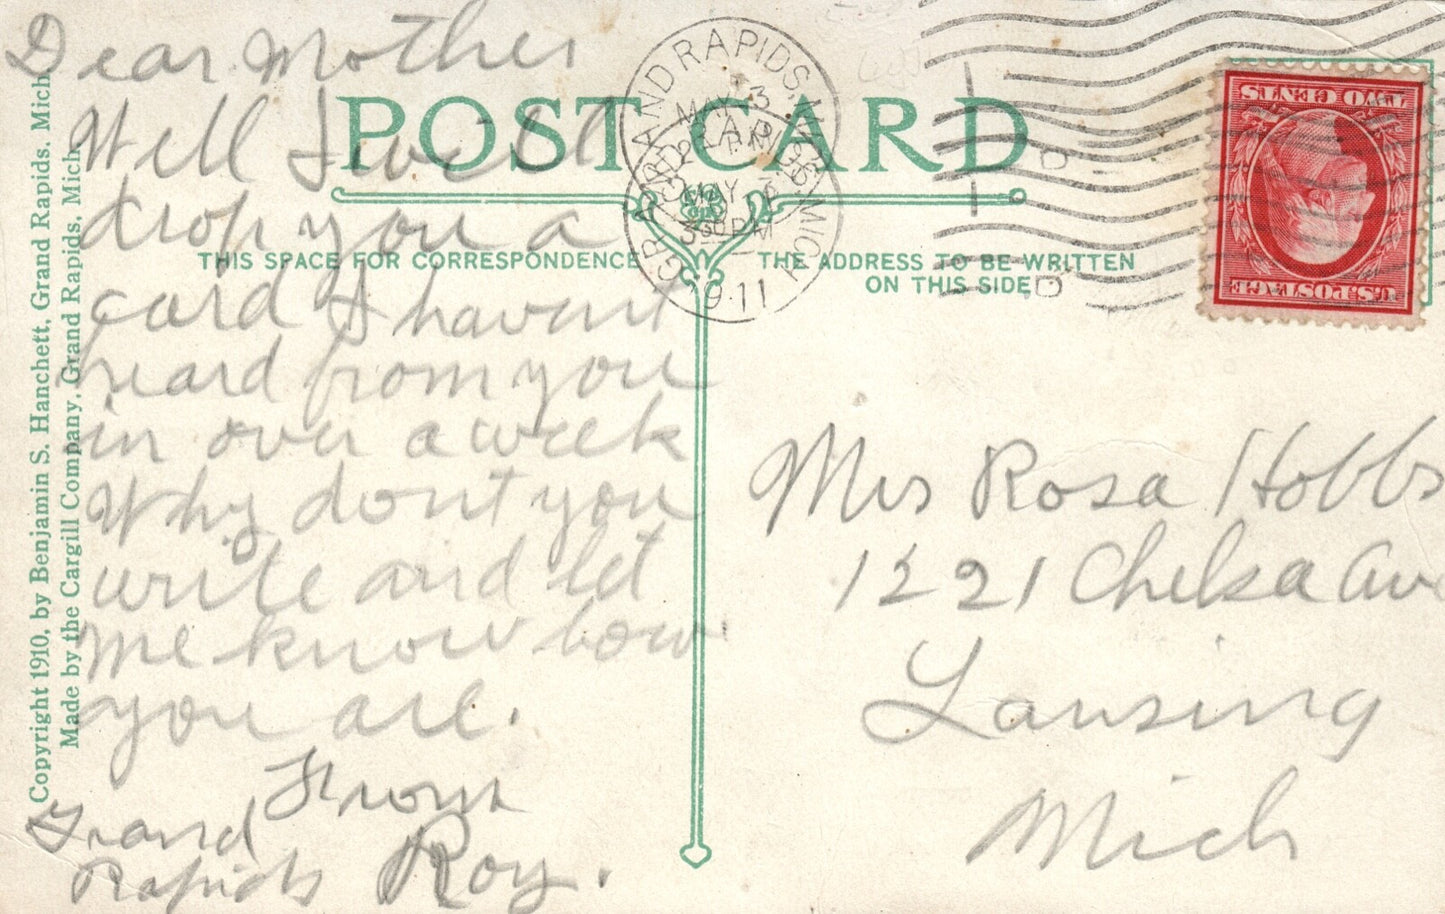 Dear Mother
Well I will
drop you a
card I havent
heard from you
in over a week
Why dont you
write and let
me know how
you are.
From
Grand
Rapids
Roy.
POST CARD
THIS SPACE FOR CORRESPONDENCE
THE ADDRESS TO BE WRITTEN
ON THIS SIDE
Copyright 1910, by Benjamin S. Hanchett, Grand Rapids, Mich.
Made by the Cargill Company, Grand Rapids, Mich.
GRAND RAPIDS, MICH.
MAY 3
MAY 3
330 PM
1911
TWO CENTS
U.S. POSTAGE
Mrs Rosa Hobbs
1221 Chelsa Ave
Lansing
Mich